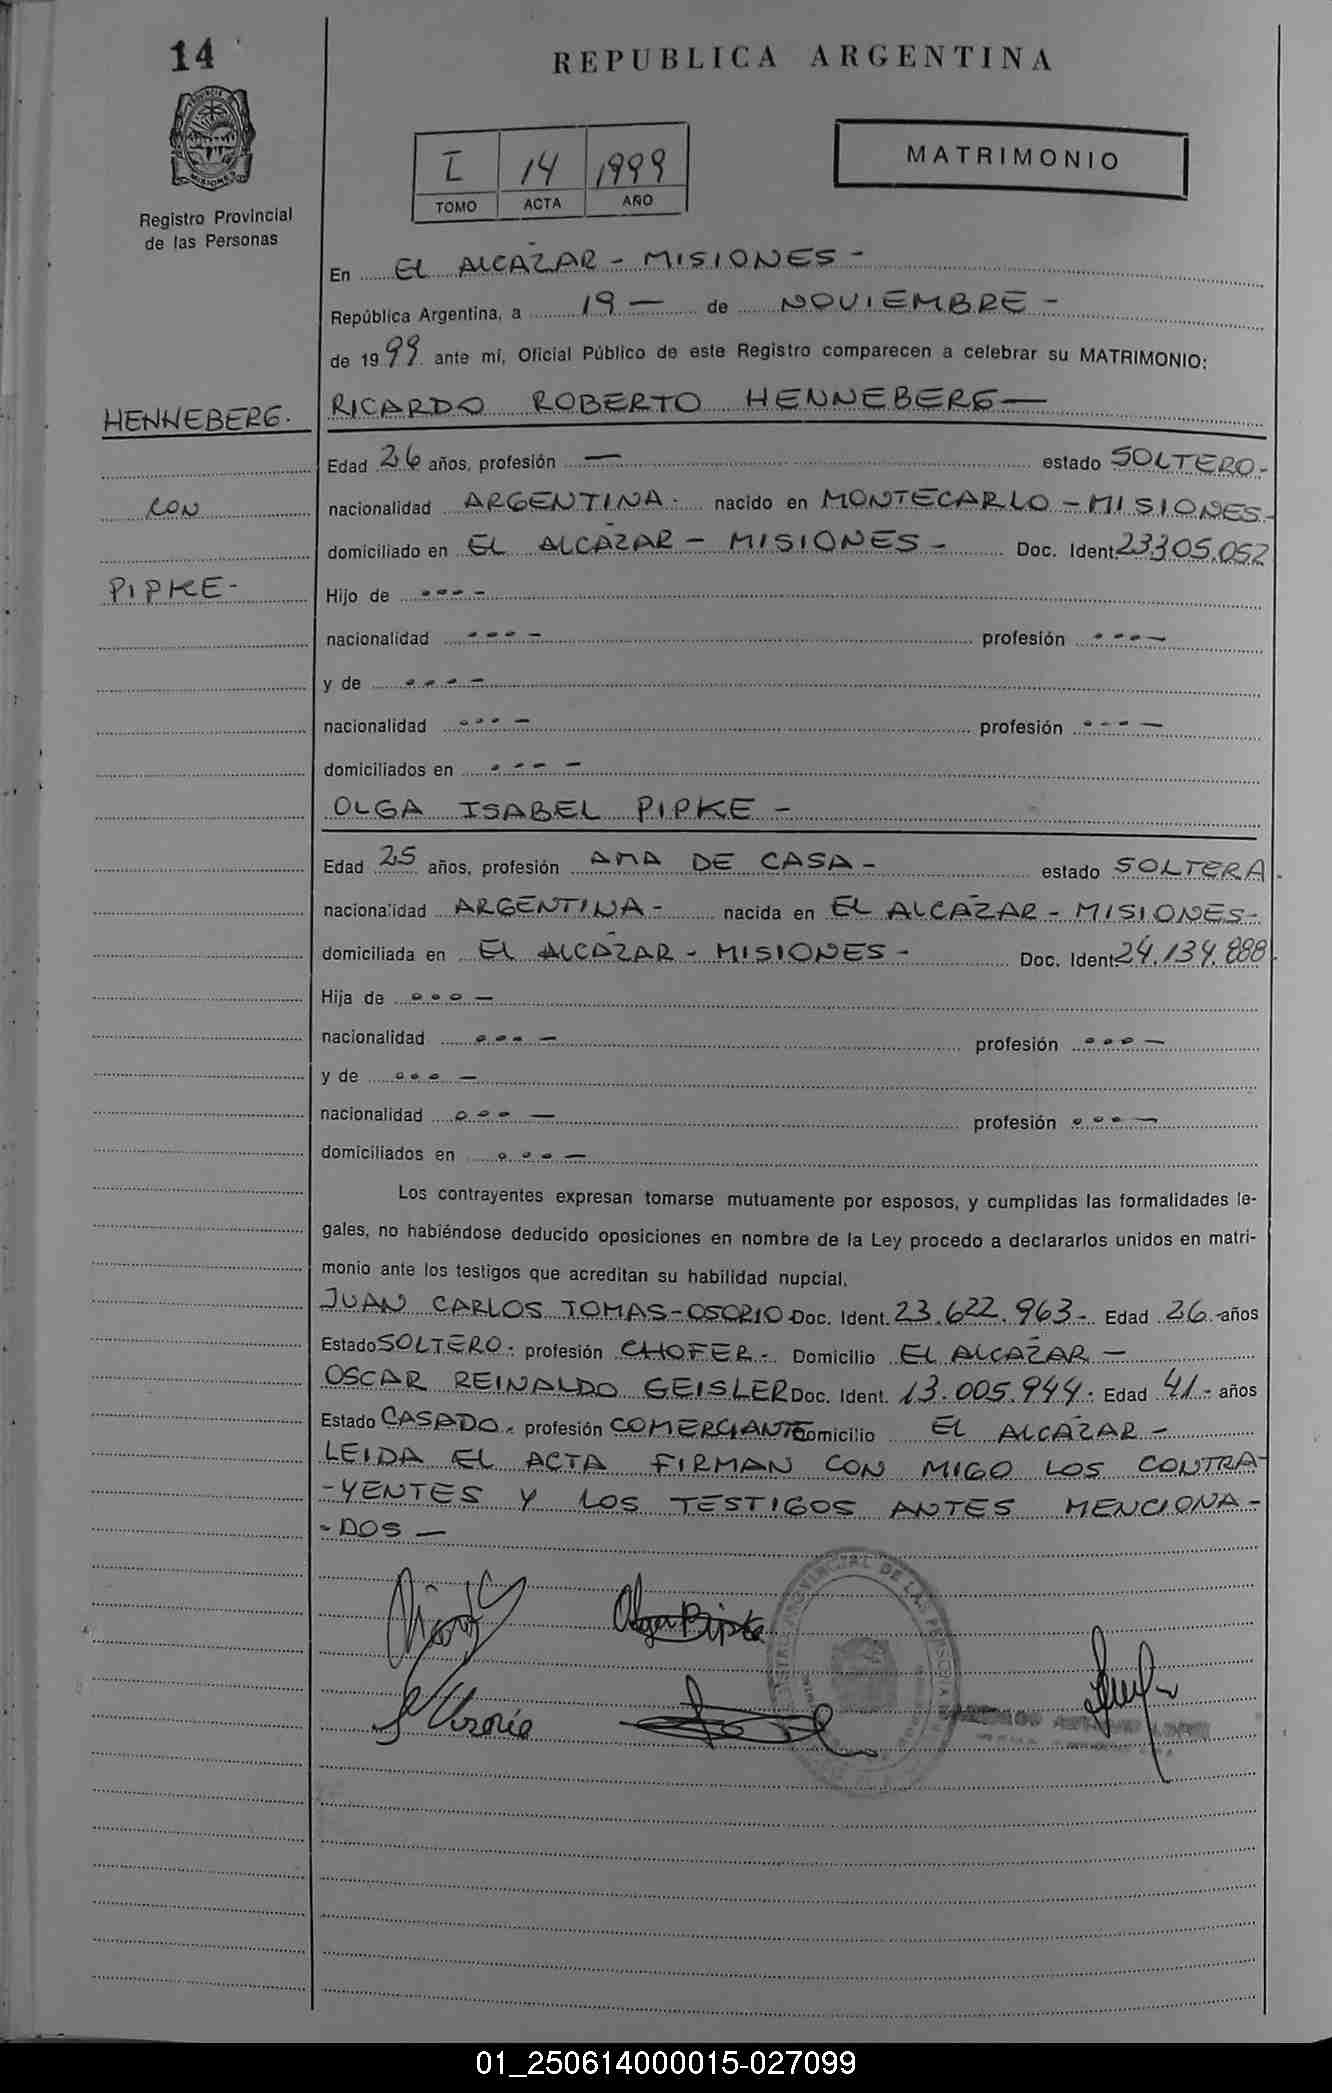 14
REPUBLICA ARGENTINA
PROVINCIA DE
MISIONES
Registro Provincial
de las Personas
I 14 1999
TOMO ACTA AÑO
MATRIMONIO
En EL ALCAZAR - MISIONES -
República Argentina, a 19 — de NOVIEMBRE -
de 1999 ante mí, Oficial Público de este Registro comparecen a celebrar su MATRIMONIO:
HENNEBERG.
RICARDO ROBERTO HENNEBERG —
Edad 26 años, profesión — estado SOLTERO -
CON
nacionalidad ARGENTINA - nacido en MONTECARLO - MISIONES -
domiciliado en EL ALCAZAR - MISIONES - Doc. Ident. 23305.052
PIPKE -
Hijo de ---- 
nacionalidad ---- profesión ----
y de ----
nacionalidad ---- profesión ----
domiciliados en ----
OLGA ISABEL PIPKE -
Edad 25 años, profesión AMA DE CASA - estado SOLTERA.
nacionalidad ARGENTINA - nacida en EL ALCAZAR - MISIONES -
domiciliada en EL ALCAZAR - MISIONES - Doc. Ident. 24.134.888
Hija de ° ° ° —
nacionalidad ° ° ° — profesión ° ° ° —
y de ° ° ° —
nacionalidad ° ° ° — profesión ° ° ° —
domiciliados en ° ° ° —
Los contrayentes expresan tomarse mutuamente por esposos, y cumplidas las formalidades le-
gales, no habiéndose deducido oposiciones en nombre de la Ley procedo a declararlos unidos en matri-
monio ante los testigos que acreditan su habilidad nupcial.
JUAN CARLOS TOMAS-OSORIO Doc. Ident. 23.622.963 - Edad 26 - años
Estado SOLTERO - profesión CHOFER - Domicilio EL ALCAZAR —
OSCAR REINALDO GEISLER Doc. Ident. 13.005.944 - Edad 41 - años
Estado CASADO - profesión COMERCIANTE Domicilio EL ALCAZAR -
LEIDA EL ACTA FIRMAN CON MIGO LOS CONTRA-
-YENTES Y LOS TESTIGOS ANTES MENCIONA-
-DOS —
Olga Pipke
01_250614000015-027099